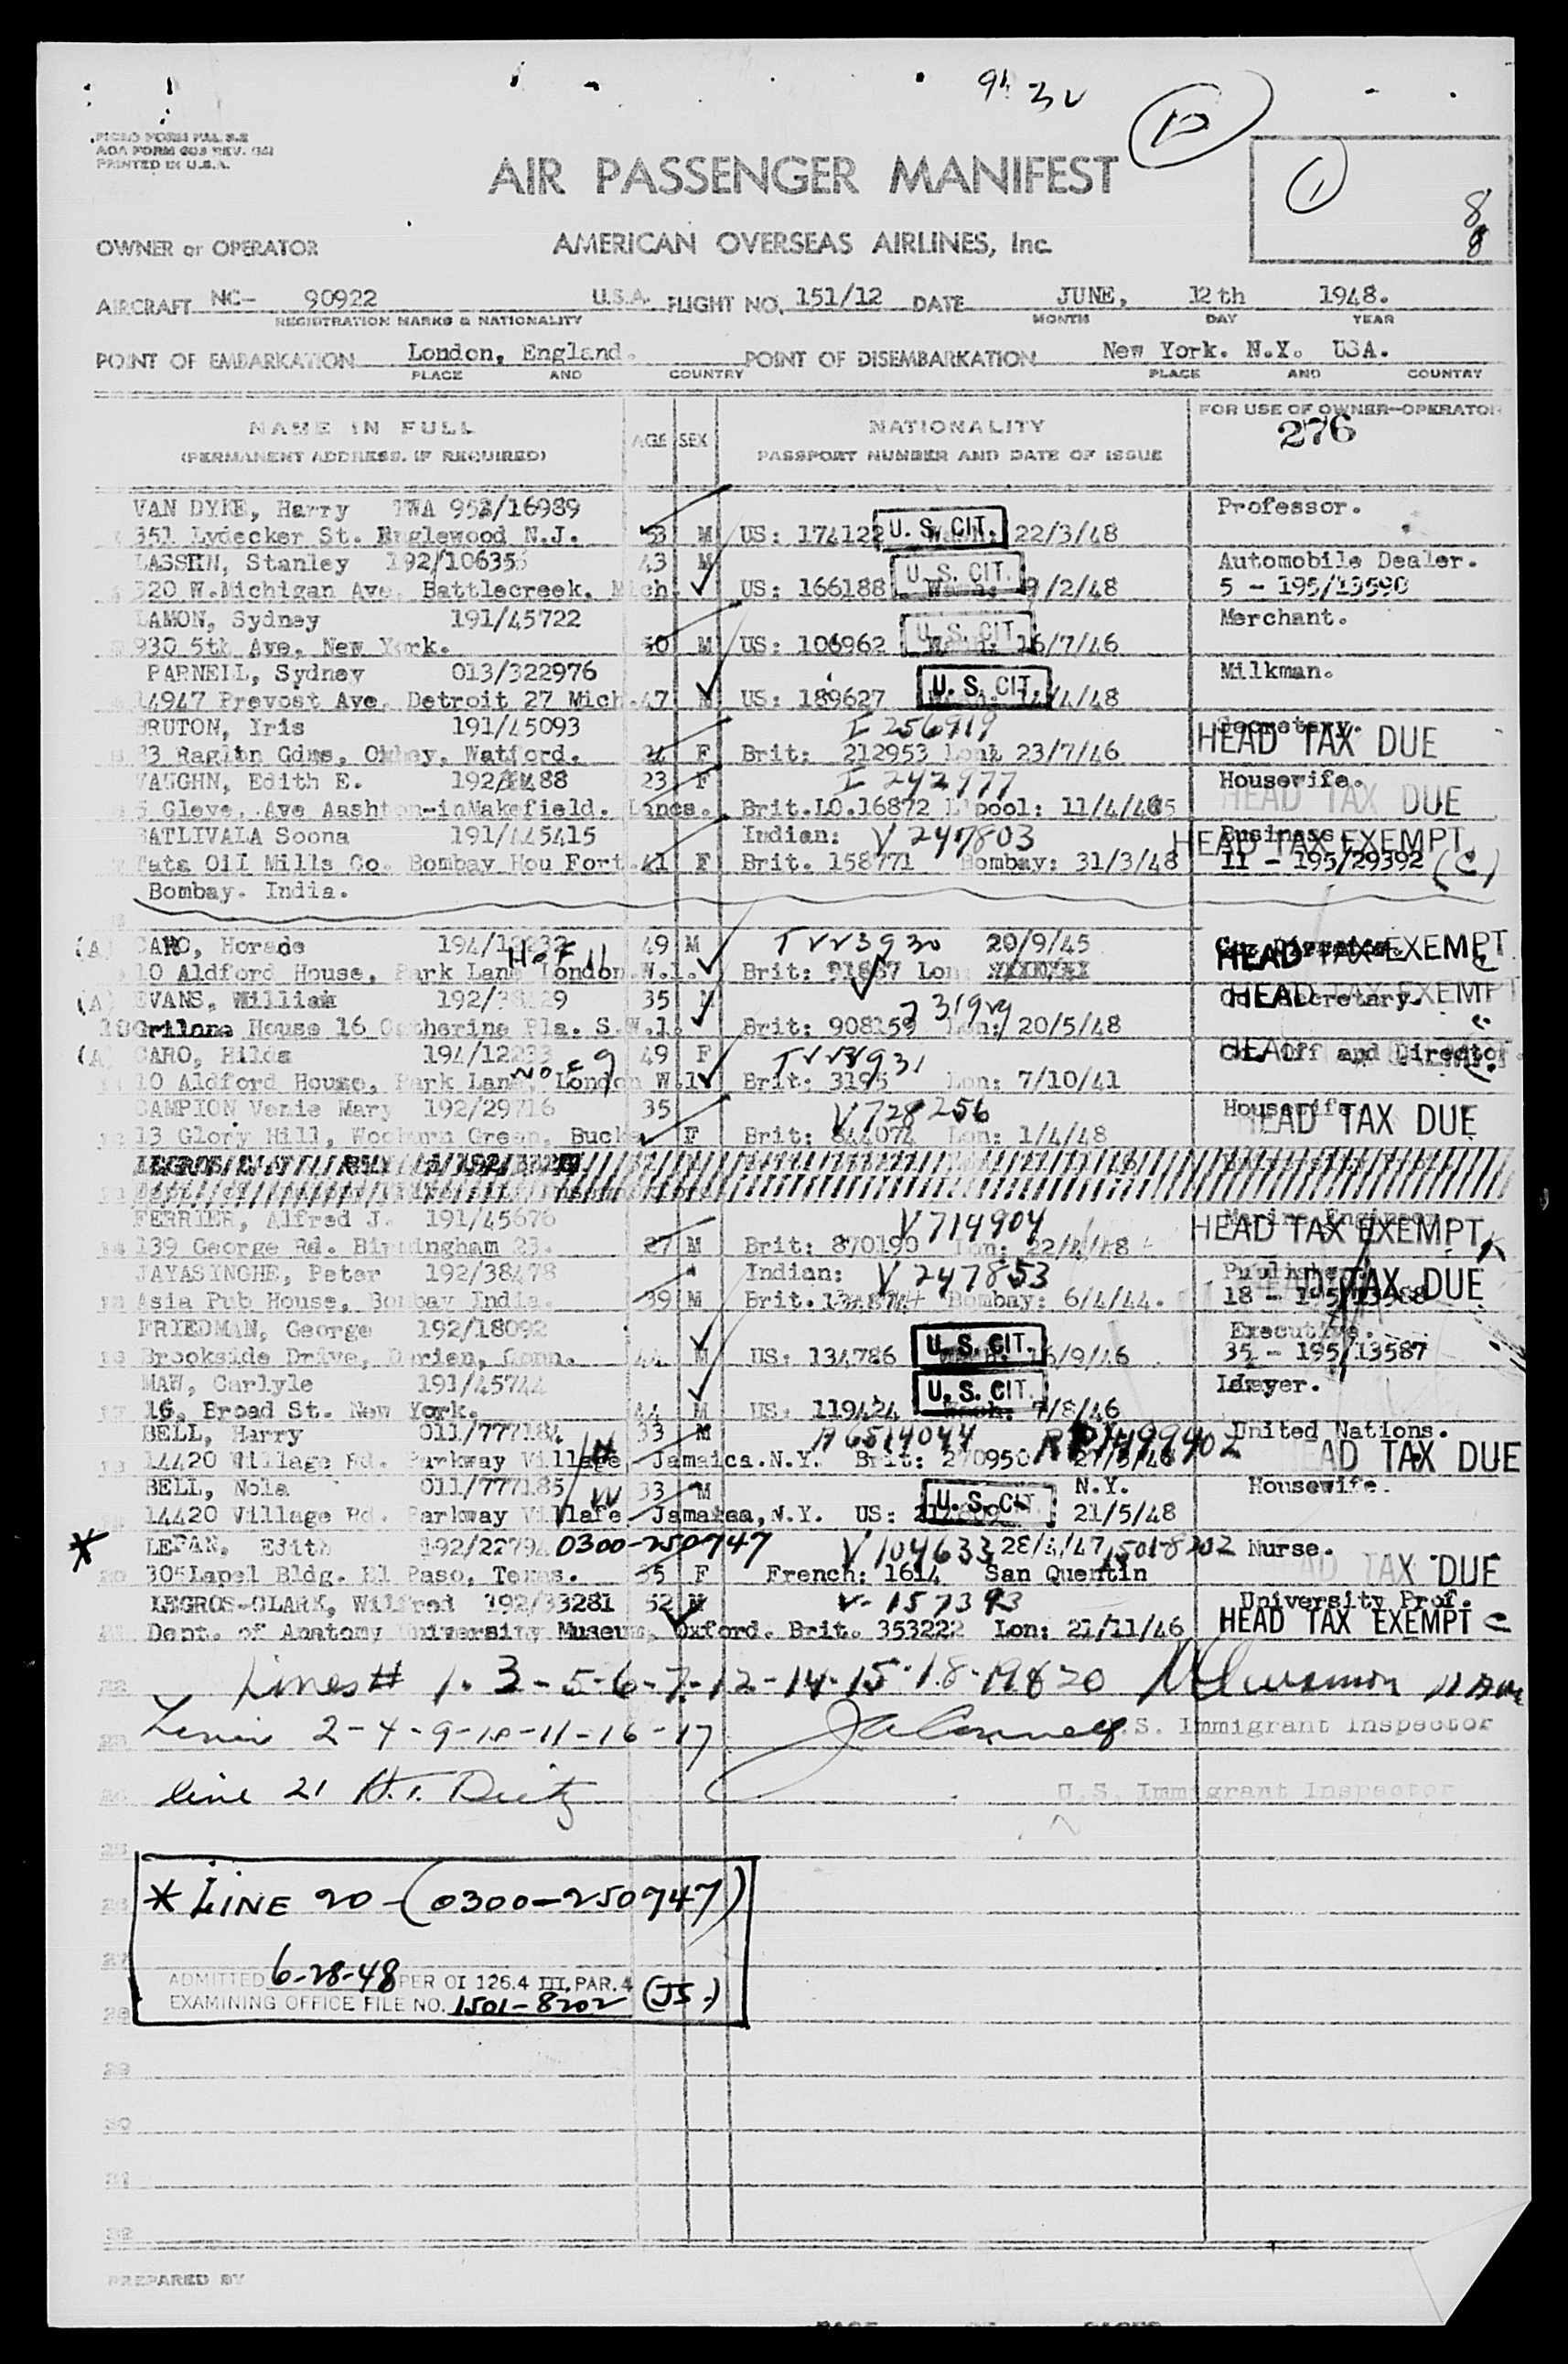 94 3V
12
PRINTED IN U.S.A.
AIR PASSENGER MANIFEST
1
8
8
OWNER or OPERATOR AMERICAN OVERSEAS AIRLINES, Inc.
AIRCRAFT NC- 90922 U.S.A. FLIGHT NO. 151/12 DATE JUNE, 12th 1948.
REGISTRATION MARKS & NATIONALITY MONTH DAY YEAR
POINT OF EMBARKATION London, England. POINT OF DISEMBARKATION New York. N.Y. USA.
PLACE AND COUNTRY PLACE AND COUNTRY
NAME IN FULL AGE SEX NATIONALITY FOR USE OF OWNER-OPERATOR
(PERMANENT ADDRESS, IF REQUIRED) PASSPORT NUMBER AND DATE OF ISSUE 276
VAN DYKE, Harry TWA 952/16989 Professor.
351 Lydecker St. Englewood N.J. 53 M US: 174122 U. S. CIT. 22/3/48
Stanley 192/10635 43 M Automobile Dealer.
320 W.Michigan Ave. Battlecreek, Mich. US: 166188 U. S. CIT. 9/2/48 5 - 195/13590
LAMON, Sydney 191/45722 Merchant.
930 5th Ave, New York. 50 M US: 106962 U. S. CIT. 16/7/46
PARNELL, Sydney 013/322976 Milkman.
14947 Prevost Ave. Detroit 27 Mich. 47 M US: 189627 U. S. CIT. /4/48
BRUTON, Iris 191/45093 I 256919 Secretary.
23 Raglan Gdns, Oxhey, Watford. 24 F Brit: 212953 Lon: 23/7/46 HEAD TAX DUE
VAUGHN, Edith E. 23 F I 242977 Housewife.
5 Gleve, Ave Aashton-inMakefield. Lancs. Brit.LO.16872 L'pool: 11/4/46 HEAD TAX DUE
BATLIVALA Soona 191/445415 Indian: V 247803 Business. HEAD TAX EXEMPT
Tata OIl Mills Co. Bombay Hou Fort. 41 F Brit. 158771 Bombay: 31/3/48 11 - 195/29392 (C)
Bombay. India.
(A) CARO, Horace 194/12232 49 M T VV3930 20/9/45 HEAD TAX EXEMPT
10 Aldford House, Park Lane London.W.1. Brit: 91887 Lon C
(A) EVANS, William 35 M HEAD TAX EXEMPT
10 House 16 Catherine Pla. S.W.1. Brit: 908159 Lon: 20/5/48 C
(A) CARO, Hilda 194/12233 49 F T VV3931 Co. Off and Director.
10 Aldford House, Park Lane, London W.1 Brit: 3195 Lon: 7/10/41 C
CAMPION Venie Mary 192/29716 35 V728256 Housewife
13 Glory Hill, Wooburn Green, Bucks F Brit: 844074 Lon: 1/4/48 HEAD TAX DUE
FERRIER, Alfred J. 191/45676 V714904 Marine Engineer
139 George Rd. Birmingham 23. 27 M Brit: 870190 Lon: 22/4/48 HEAD TAX EXEMPT
JAYASINGHE, Peter 192/38478 Indian: V 247853 Publisher HEAD TAX DUE
Asia Pub House, Bombay India. 39 M Brit. Bombay: 6/4/44. 18 - 195/13588
FRIEDMAN, George 192/18092 Executive.
Brookside Drive, Darien, Conn. 44 M US: 134786 U. S. CIT. 6/9/46 35 - 195/13587
MAW, Carlyle 191/45744 Lawyer.
16, Broad St. New York. 44 M US: 119424 U. S. CIT. 7/8/46
BELL, Harry 011/777184 33 M A6514044 United Nations.
14420 Village Rd. Parkway Village, Jamaica.N.Y. Brit: 270950 HEAD TAX DUE
BELL, Nola 011/777185 33 M N.Y. Housewife.
14420 Village Rd. Parkway Villafe Jamaica,N.Y. US: U. S. CIT. 21/5/48
* LEFAN, Edith 192/22794 0300-250747 V104633 28/4/47 1501-8202 Nurse.
305Lapel Bldg. El Paso, Texas. 35 F French: 1614 San Quentin HEAD TAX DUE
LEGROS-CLARK, Wilfred 192/33281 52 M V-157393 University Prof.
Dept. of Anatomy University Museum, Oxford. Brit. 353222 Lon: 21/11/46 HEAD TAX EXEMPT C
Lines # 1-3-5-6-7-12-14-15-18-19&20
Lines 2-4-9-10-11-16-17 U.S. Immigrant Inspector
line 21 H.T. Dietz U.S. Immigrant Inspector
* LINE 20-(0300-250747)
ADMITTED 6-28-48 PER OI 126.4 III, PAR. 4
EXAMINING OFFICE FILE NO. 1501-8202 (JS.)
PREPARED BY